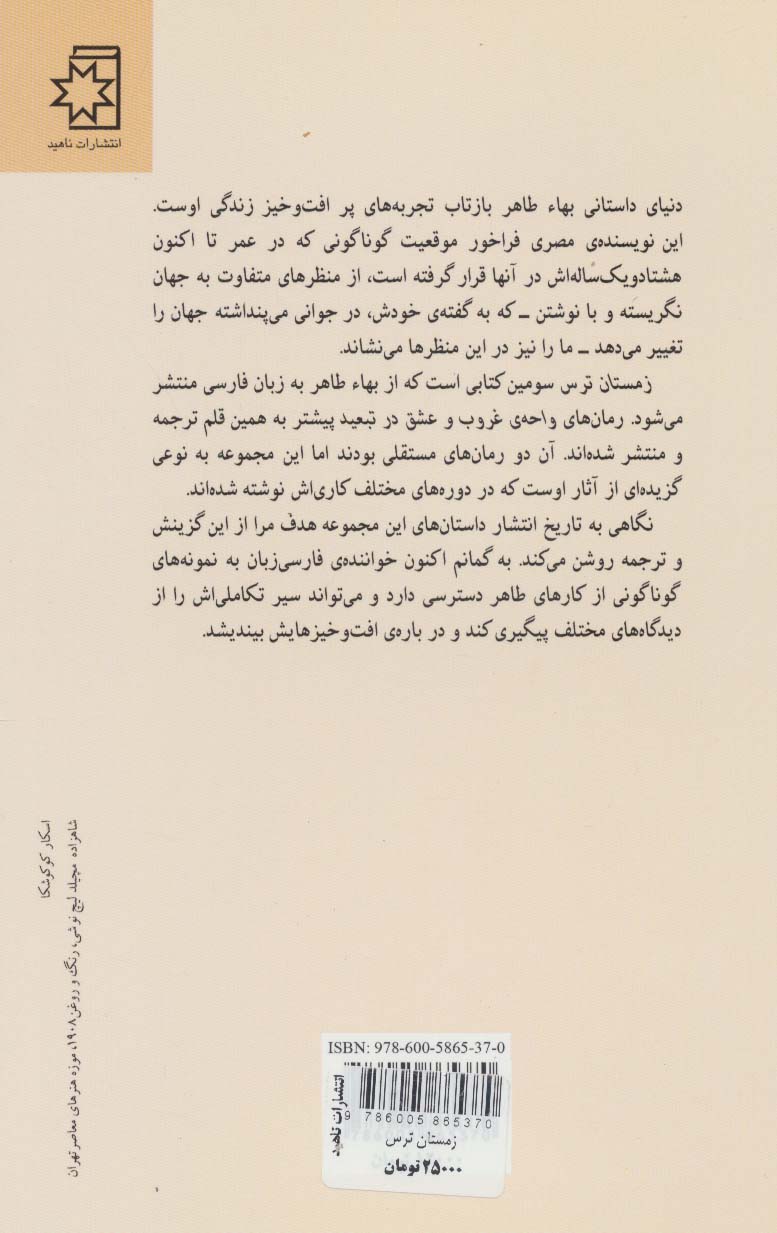 انتشارات ناهید
دنیای داستانی بهاء طاهر بازتاب تجربه‌های پر افت‌وخیز زندگی اوست.
این نویسنده‌ی مصری فراخور موقعیت گوناگونی که در عمر تا اکنون
هشتادویک‌ساله‌اش در آنها قرار گرفته است، از منظرهای متفاوت به جهان
نگریسته و با نوشتن ــ که به گفته‌ی خودش، در جوانی می‌پنداشته جهان را
تغییر می‌دهد ــ ما را نیز در این منظرها می‌نشاند.
زمستان ترس سومین کتابی است که از بهاء طاهر به زبان فارسی منتشر
می‌شود. رمان‌های واحه‌ی غروب و عشق در تبعید پیشتر به همین قلم ترجمه
و منتشر شده‌اند. آن دو رمان‌های مستقلی بودند اما این مجموعه به نوعی
گزیده‌ای از آثار اوست که در دوره‌های مختلف کاری‌اش نوشته شده‌اند.
نگاهی به تاریخ انتشار داستان‌های این مجموعه هدف مرا از این گزینش
و ترجمه روشن می‌کند. به گمانم اکنون خواننده‌ی فارسی‌زبان به نمونه‌های
گوناگونی از کارهای طاهر دسترسی دارد و می‌تواند سیر تکاملی‌اش را از
دیدگاه‌های مختلف پیگیری کند و در باره‌ی افت‌وخیزهایش بیندیشد.
اسکار کوکوشکا
شاهزاده مچیلد لیچ نوشی، رنگ و روغن ۱۹۰۸، موزه هنرهای معاصر تهران
ISBN: 978-600-5865-37-0
انتشارات ناهید
9 786005 865370
زمستان ترس
۲۵۰۰۰ تومان